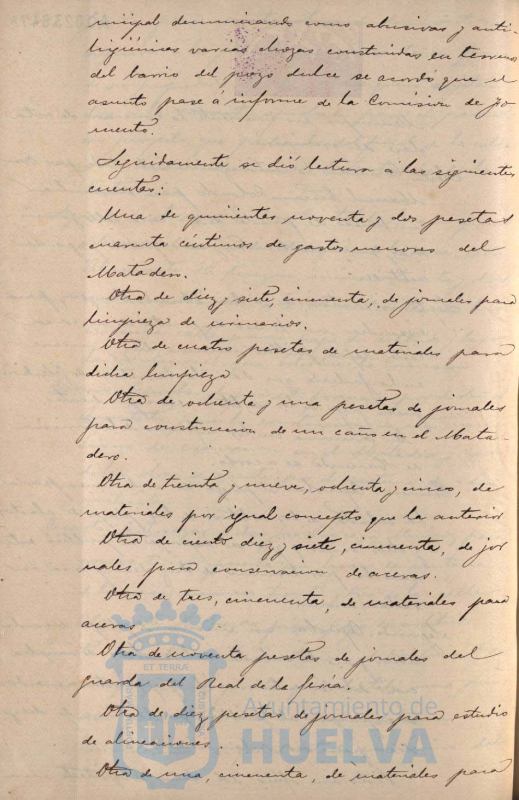 nicipal denunciando como abusivas y anti-
higiénicas varias chozas construidas en terrenos
del barrio del pozo dulce se acordó que el
asunto pase a informe de la Comision de Fo-
mento.
Seguidamente se dió lectura a las siguientes
cuentas:
Una de quinientas noventa y dos pesetas
cuarenta céntimos de gastos menores del
Matadero.
Otra de diez y siete, cincuenta, de jornales para
limpieza de urinarios.
Otra de cuatro pesetas de materiales para
dicha limpieza
Otra de ochenta y una pesetas de jornales
para construccion de un caño en el Mata-
dero.
Otra de treinta y nueve, ochenta y cinco, de
materiales por igual concepto que la anterior
Otra de ciento diez y siete, cincuenta, de jor
nales para conservacion de aceras.
Otra de tres, cincuenta, de materiales para
aceras
Otra de noventa pesetas de jornales del
guarda del Real de la feria.
Otra de diez pesetas de jornales para estudio
de alineaciones.
Otra de una, cincuenta, de materiales para
ET TERRÆ
Ayuntamiento de
HUELVA